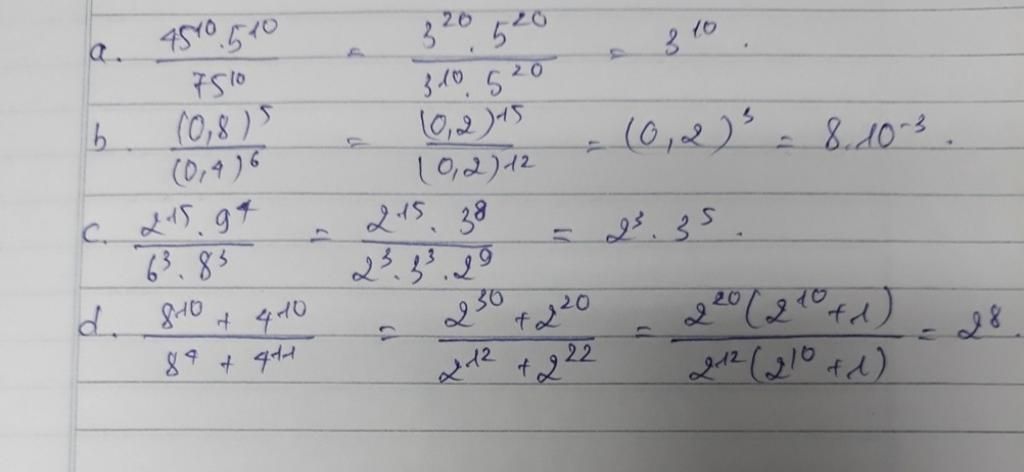 a. \frac{45^{10} . 5^{10}}{75^{10}} = \frac{3^{20} . 5^{20}}{3^{10} . 5^{20}} = 3^{10} .
b. \frac{(0,8)^5}{(0,4)^6} = \frac{(0,2)^{15}}{(0,2)^{12}} = (0,2)^3 = 8.10^{-3} .
c. \frac{2^{15} . 9^4}{6^3 . 8^3} = \frac{2^{15} . 3^8}{2^3 . 3^3 . 2^9} = 2^3 . 3^5 .
d. \frac{8^{10} + 4^{10}}{8^4 + 4^{11}} = \frac{2^{30} + 2^{20}}{2^{12} + 2^{22}} = \frac{2^{20}(2^{10} + 1)}{2^{12}(2^{10} + 1)} = 2^8 .